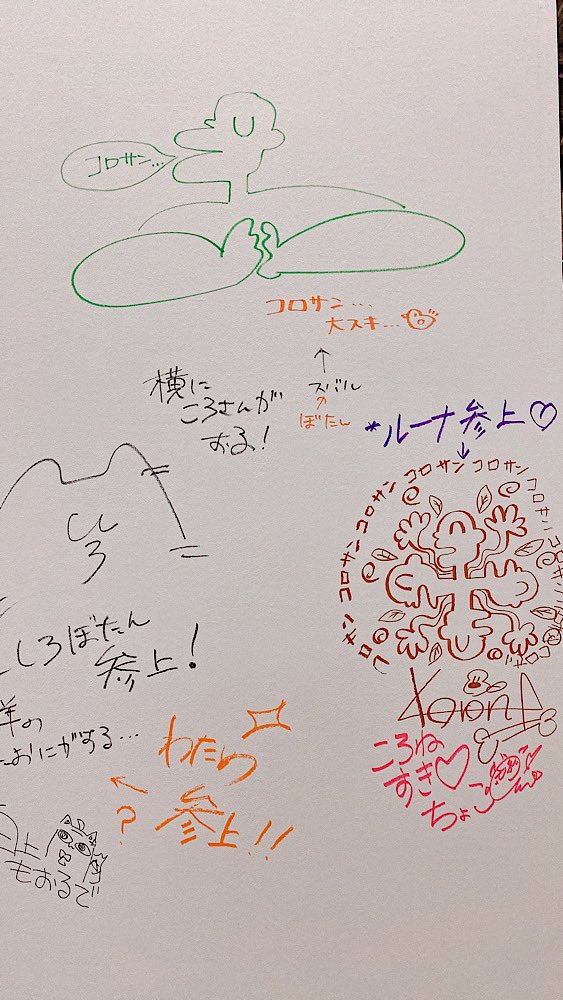 コロサン…
コロサン…
大スキ…
スバル
の
ぼたん
横に
ころさんが
おる!
*ルーナ参上♡
コロサンコロサンコロサンコロサンコロサン
しろぼたん
参上!
羊の
におにがする…
わため
参上!!
?
ころね
すき♡
ちょこ
もおるで